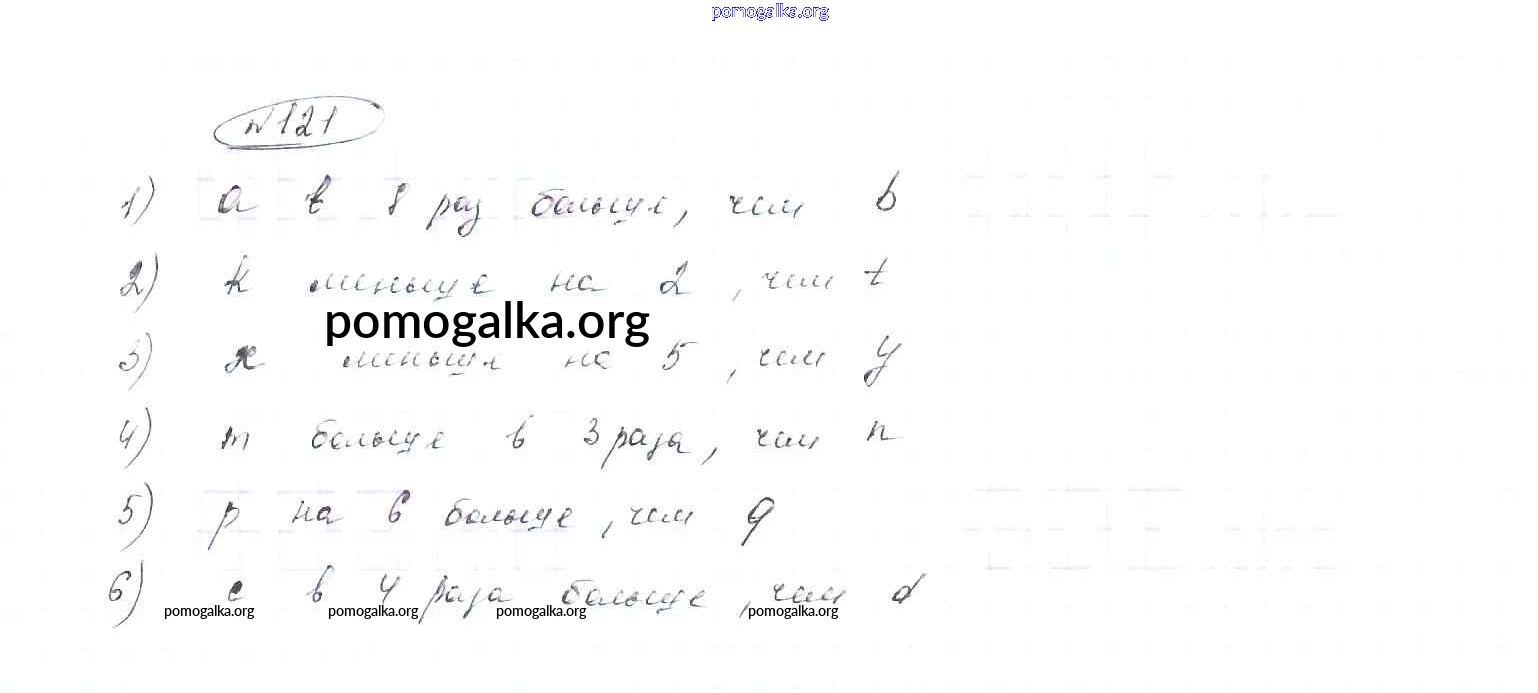 pomogalka.org
№121
1) a в 8 раз больше, чем b
2) k меньше на 2, чем t
pomogalka.org
3) x меньше на 5, чем y
4) m больше в 3 раза, чем n
5) p на 6 больше, чем q
6) c в 4 раза больше, чем d
pomogalka.org pomogalka.org pomogalka.org pomogalka.org